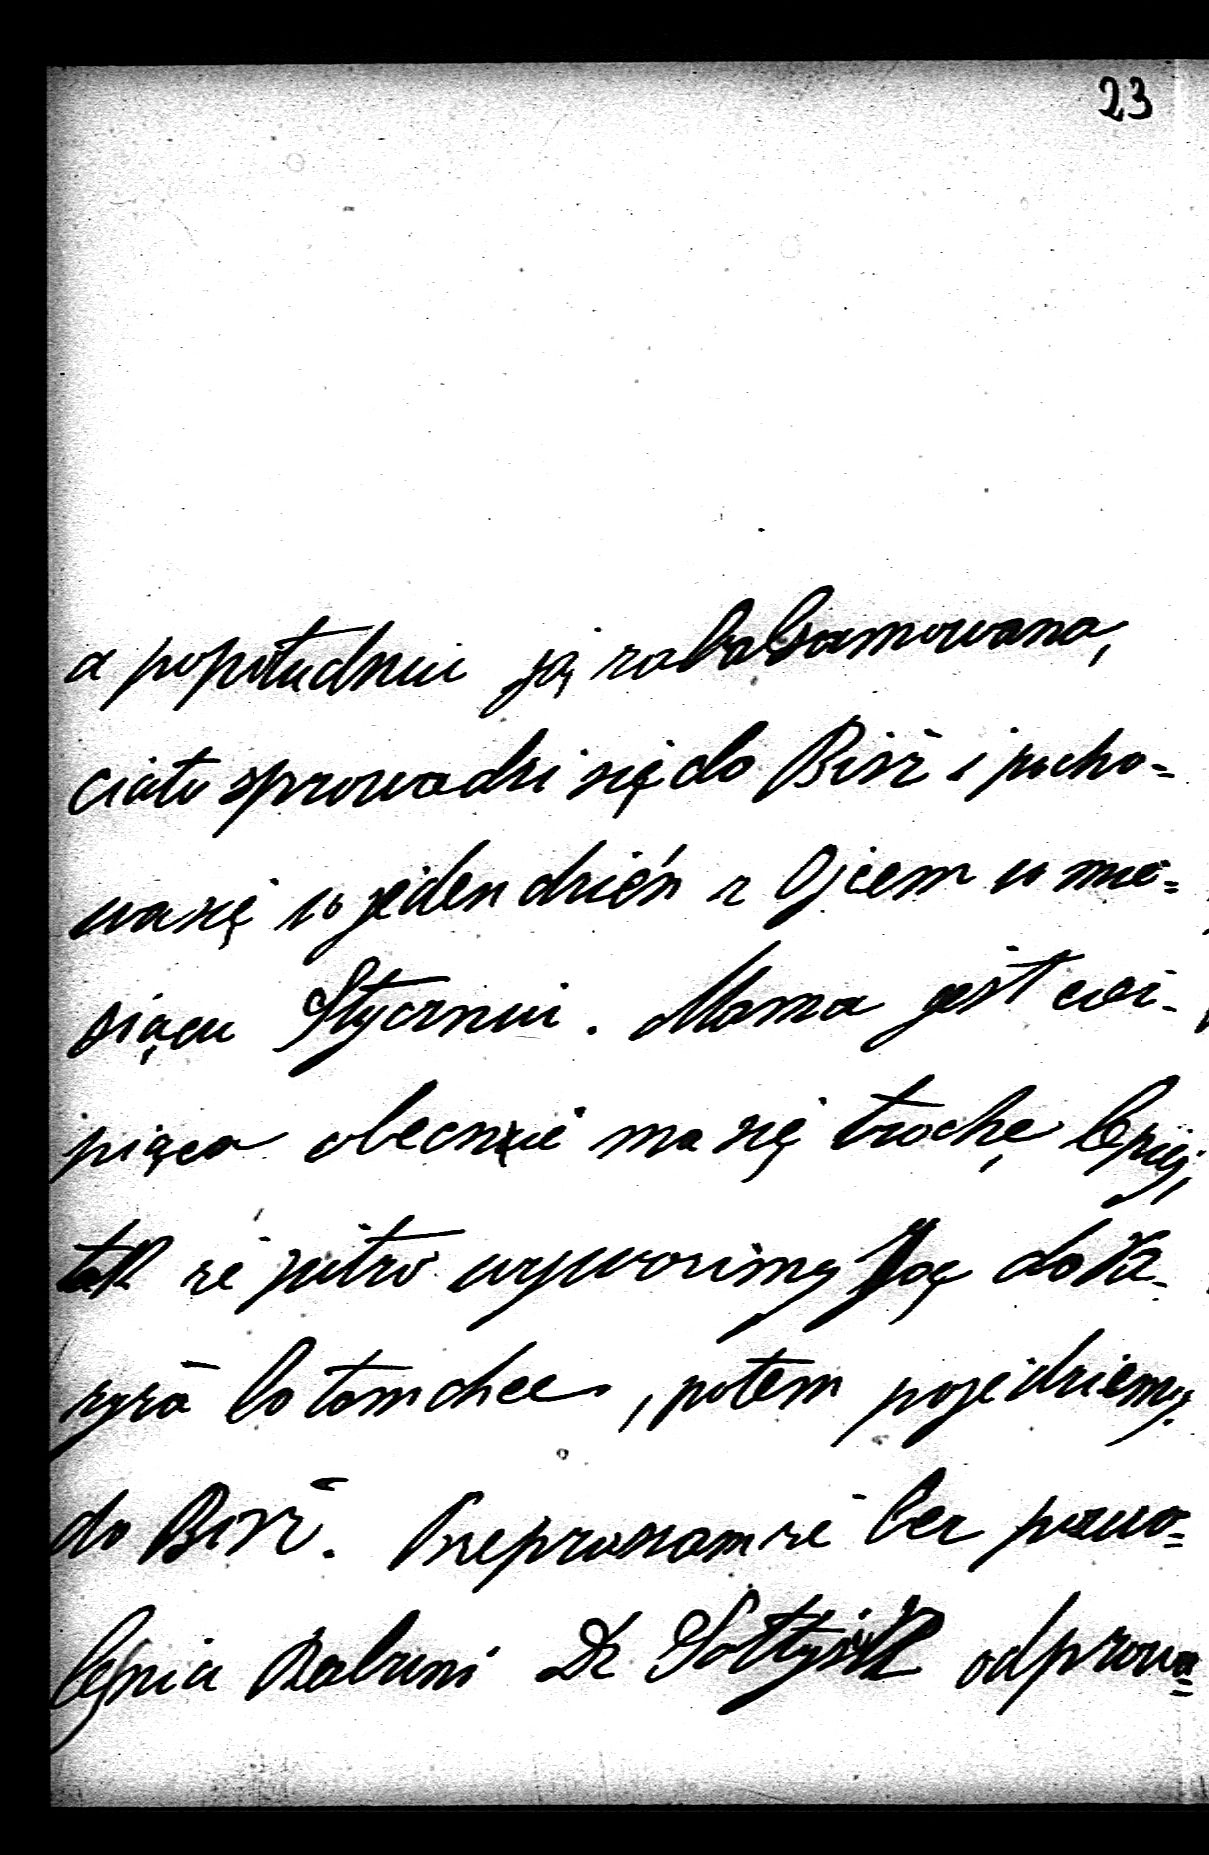 23
a popołudniu ją zabalsamowano,
ciało sprowadzi się do Birż i pocho=
wa się w jeden dzień z Ojcem w mie=
siącu Styczniu. Mama jest cier-
piąca obecnie ma się trochę lepiej,
tak że jutro wywozimy Ją do
bo tam chce, potem pojedziemy
do Birż. Przepraszam że bez pozwo=
lenia Babuni Dr Sołtysik odprowa=